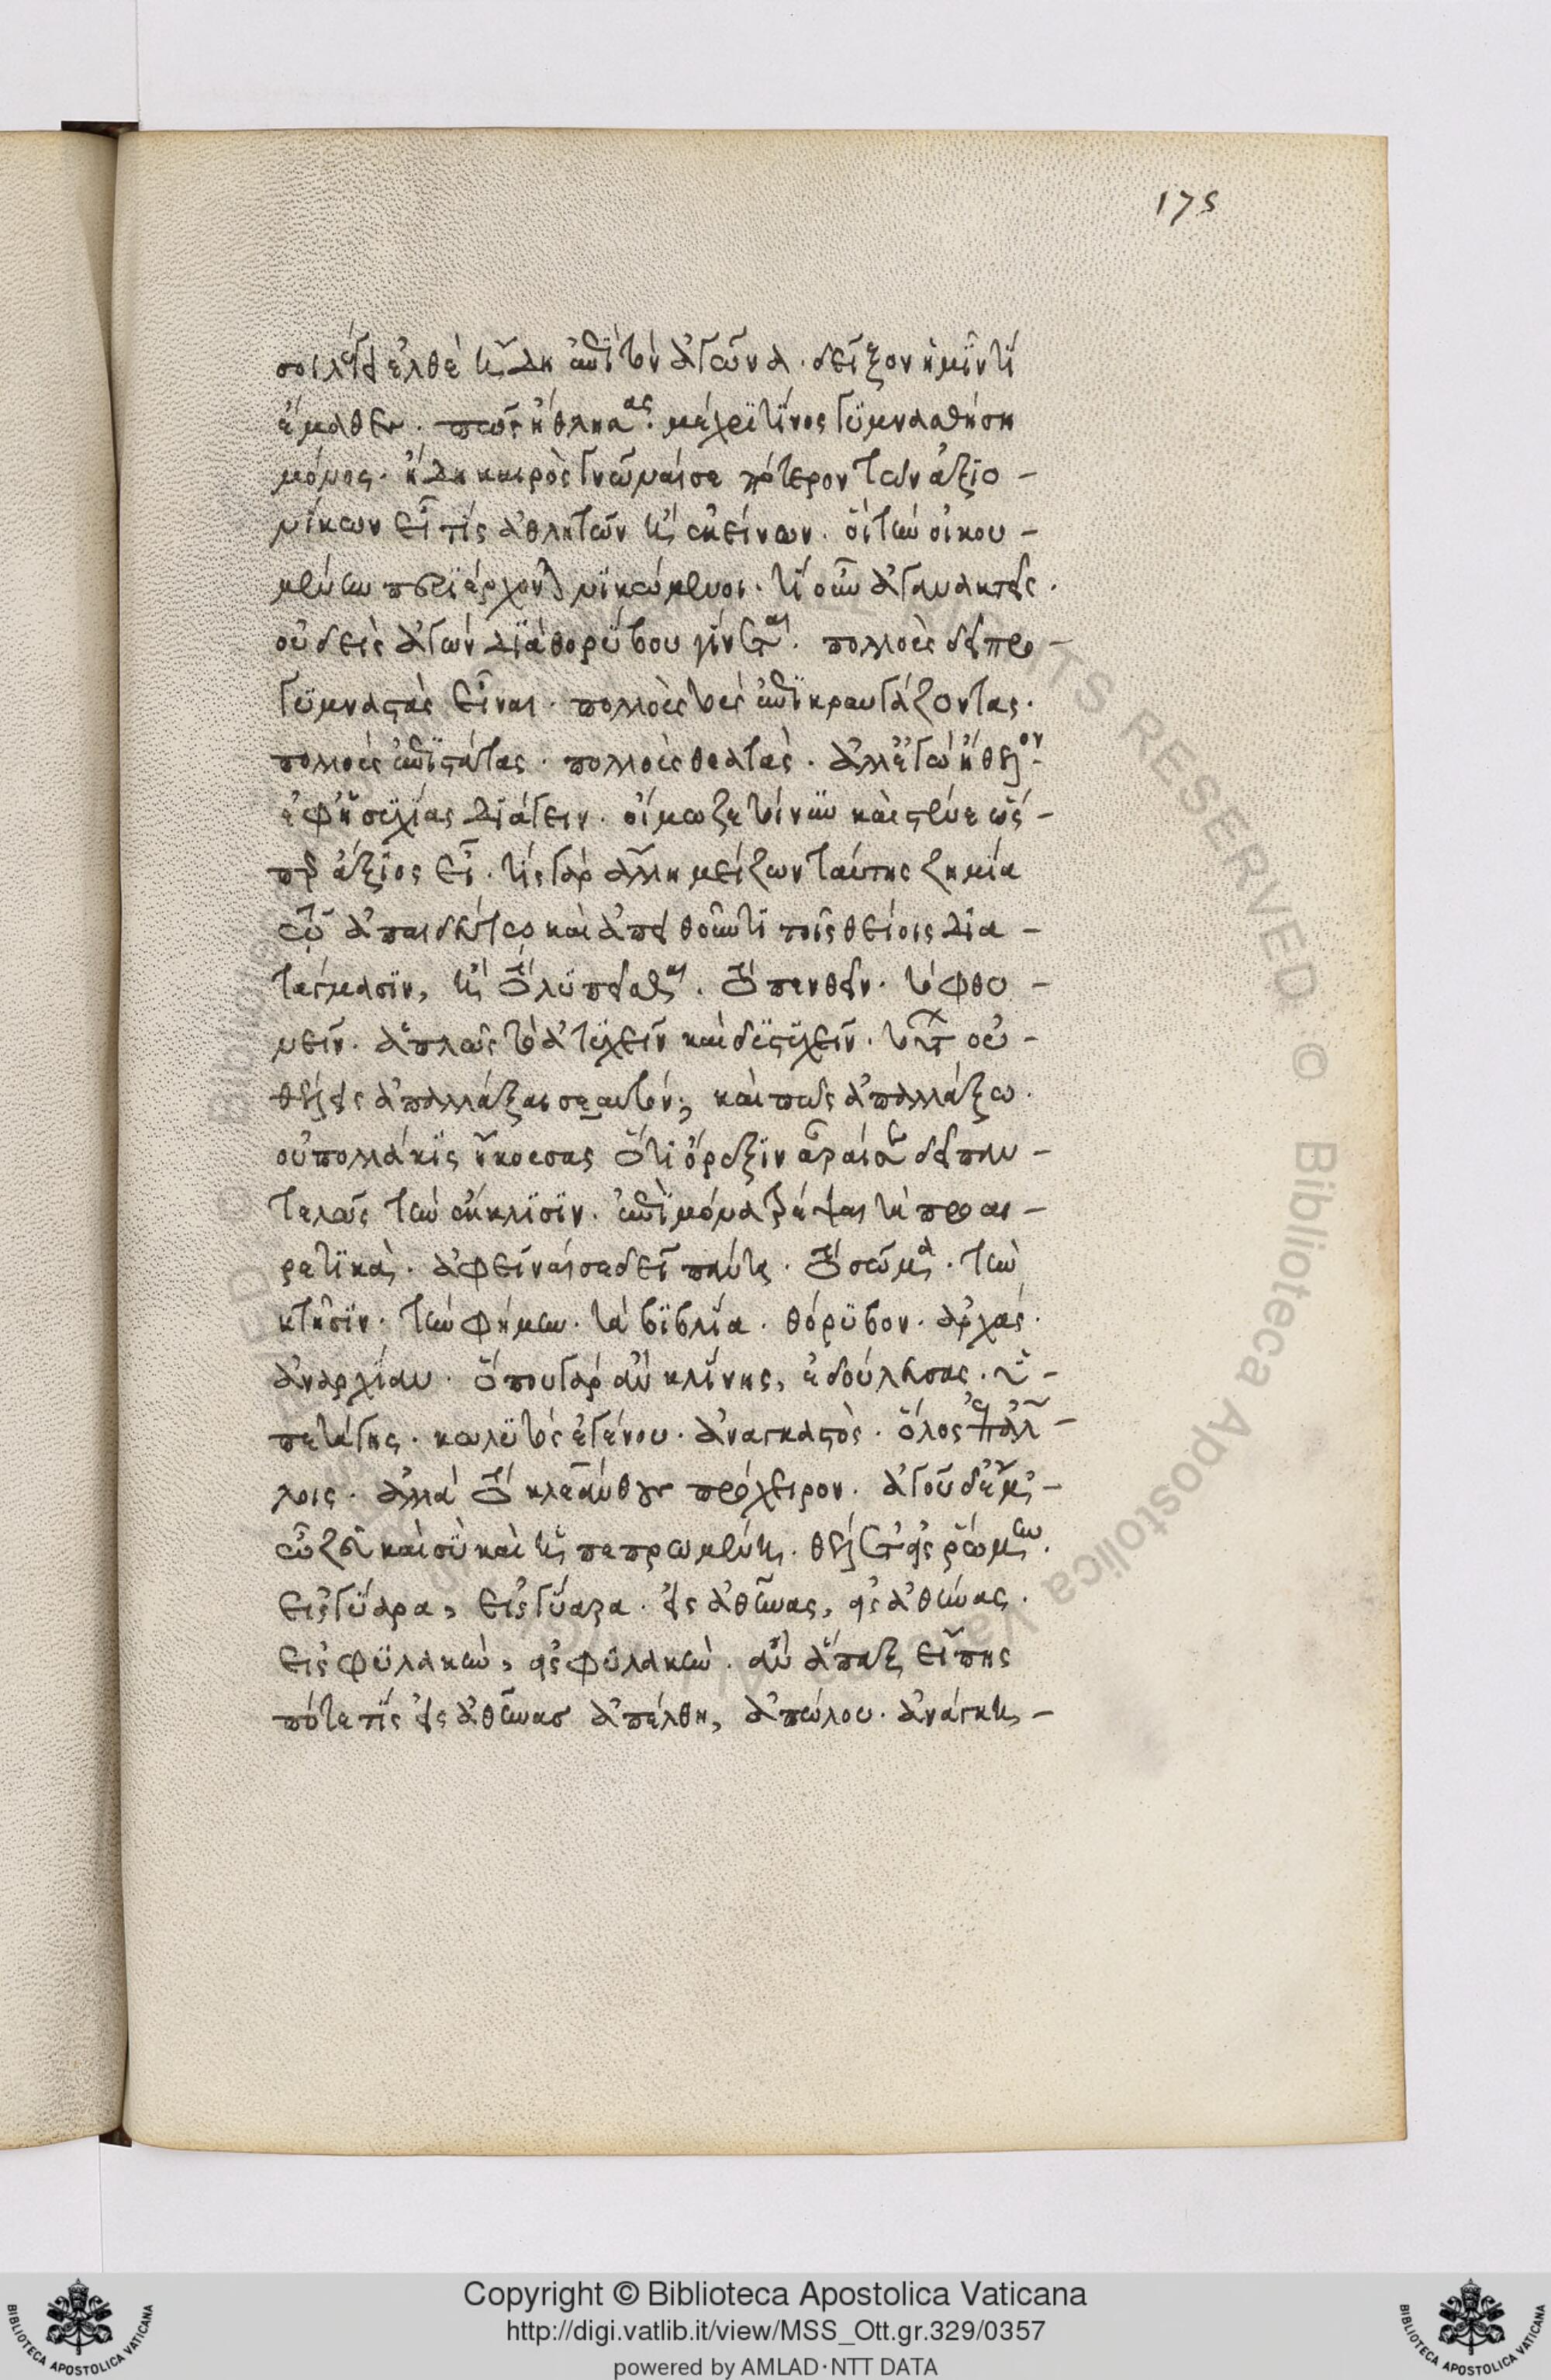 σοι λέγει ἐλθὲ ἤδη ἐπὶ τὸν ἀγῶνα. δεῖξον ἡμῖν τί
ἔμαθες. πῶς ἤθλησας. μέχρι τίνος γυμνασθήση
μόνος. ἤδη καιρὸς γνῶναί σε πότερον τῶν ἀξιο-
νίκων εἶ τίς ἀθλητῶν ἢ ἐκείνων. οἳ τὴν οἰκου-
μένην περιέρχονται νικώμενοι. τί οὖν ἀγανακτεῖς.
οὐδεὶς ἀγὼν δία θορύβου γίνεται. πολλοὺς δεῖ προ-
γυμναστὰς εἶναι. πολλοὺς τοὺς ἐπικραυγάζοντας.
πολλοὺς ἐπιστάτας. πολλοὺς θεατὰς. ἀλλ' ἐγὼ ἤθελον
ἐφ' ἡσυχίας διάγειν. οἴμωζε τοίνυν καὶ στένε ὥσ-
περ ἄξιος εἶ. τίς γὰρ ἄλλη μείζων ταύτης ζημία
τῷ ἀπαιδεύτῳ καὶ ἀπειθοῦντι τοῖς θείοις δια-
τάγμασιν, ἢ τὸ λυπεῖσθαι. τὸ πενθεῖν. τὸ φθο-
νεῖν. ἁπλῶς τὸ ἀτυχεῖν καὶ δυστυχεῖν. τούτων οὐ
θέλεις ἀπαλλάξαι σεαυτόν; καὶ πῶς ἀπαλλάξω.
οὐ πολλάκις ἤκουσας ὅτι ὄρεξιν ἆραί σε δεῖ παν-
τελῶς τὴν ἔκκλισιν. ἐπὶ μόνα τρέψαι τὰ προαι-
ρετικὰ. ἀφεῖναί σε δεῖ πάντα. τὸ σῶμα. τὴν
κτῆσιν. τὴν φήμην. τὰ βιβλία. θόρυβον. ἀρχάς.
ἀναρχίαν. ὅπου γὰρ ἂν κλίνης, ἐδούλευσας. ὑ-
πετάγης. κωλυτὸς ἐγένου. ἀναγκαστὸς. ὅλος ἐπ' ἄλ-
λοις. ἀλλὰ τὸ κλεάνθους πρόχειρον. ἄγου δέ μ'
ὦ ζεῦ καὶ σὺ καὶ ἡ πεπρωμένη. θέλετε εἰς ῥώμην.
εἰς γύαρα, εἰς γύαρα. εἰς ἀθήνας, εἰς ἀθήνας.
εἰς φυλακὴν, εἰς φυλακὴν. ἂν ἅπαξ εἴπης
πότε τίς εἰς ἀθήνας ἀπέλθη, ἀπώλου. ἀνάγκη-
175
Copyright © Biblioteca Apostolica Vaticana
http://digi.vatlib.it/view/MSS_Ott.gr.329/0357
powered by AMLAD·NTT DATA